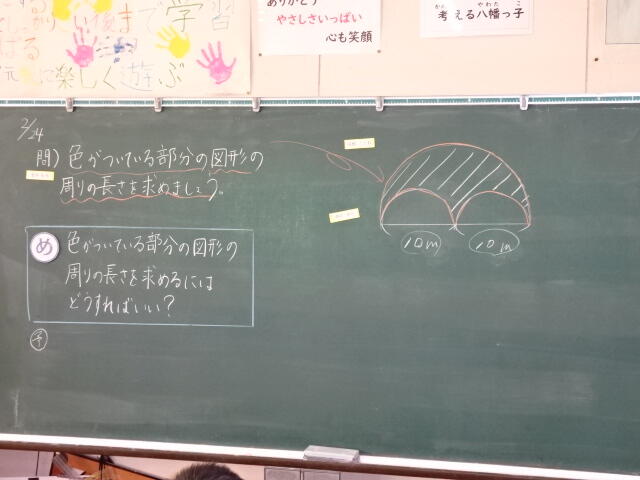 ありがとう
やさしさいっぱい
心も笑顔
考える八幡っ子
かん やわた こ
まで学習
楽しく遊ぶ
2/24
問) 色がついている部分の図形の
周りの長さを求めましょう。
め 色がついている部分の図形の
周りの長さを求めるには
どうすればいい?
予
10m 10m